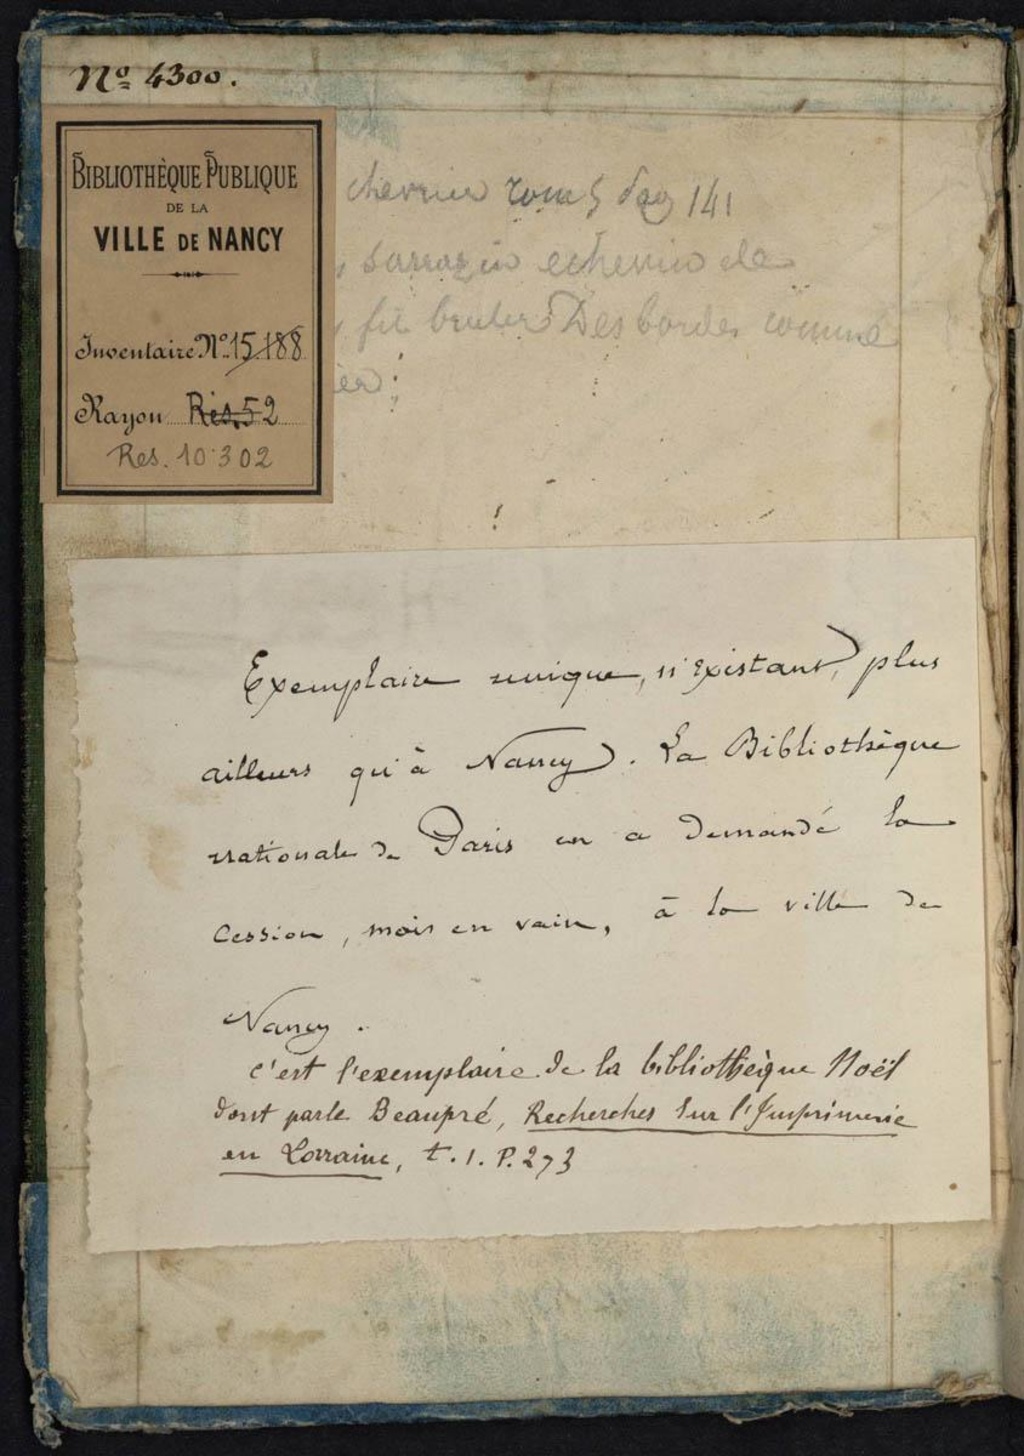 No 4300.
BIBLIOTHÈQUE PUBLIQUE
DE LA
VILLE DE NANCY
Inventaire No. 15.188
Rayon Rés. 52
Res. 10 302
chevrier tom 5 pag 141
sarrazin echevin de
fit bruler Desbordes comme
Exemplaire unique, n'existant plus
ailleurs qu'à Nancy. La Bibliothèque
nationale de Paris en a demandé la
cession, mais en vain, à la ville de
Nancy.
c'est l'exemplaire de la bibliothèque Noël
dont parle Beaupré, Recherches sur l'Imprimerie
en Lorraine, t. 1. P. 273